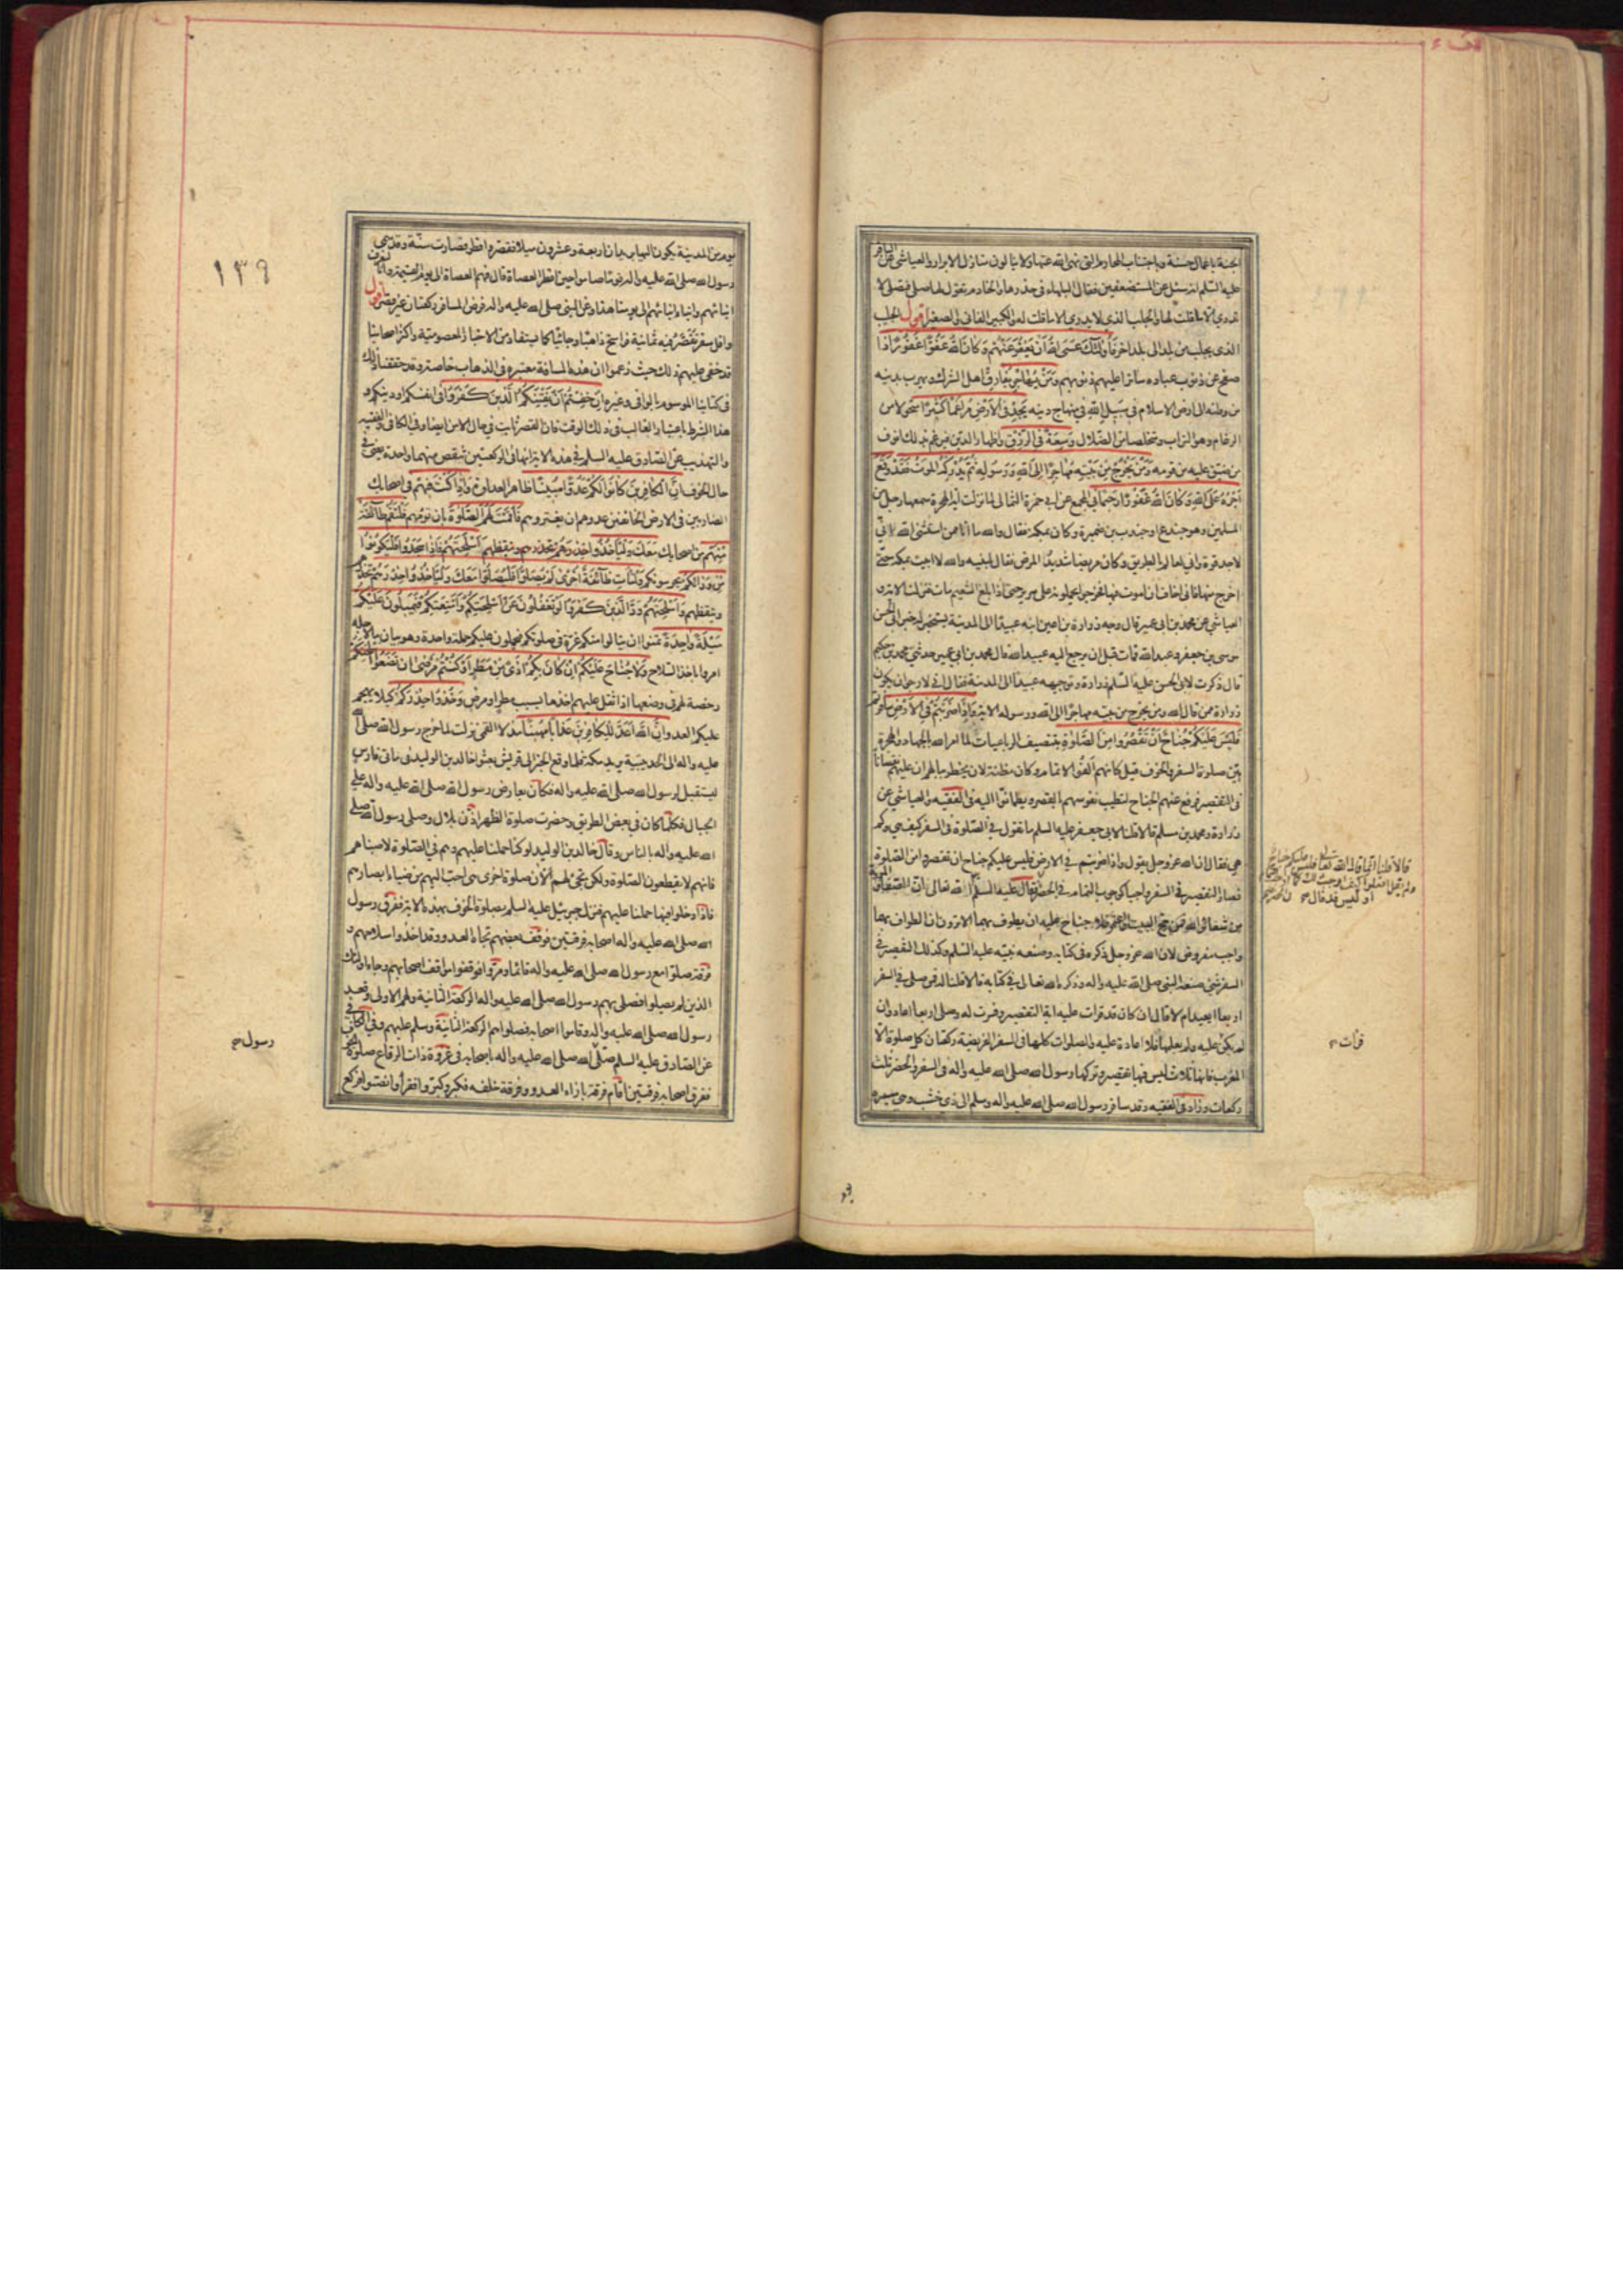 الجنة باعمال حسنة وباجتناب المحارم التى نهى الله عنها ولا ينالون منازل الابرار والعياشي عن الباقر
عليه السلم انه سئل عن المستضعفين فقال البلهاء في خدرها والخادم تقول لها صلي فتصلي لا
تدري الا ما قلت لها والجليب الذي لا يدري الا ما قلت له والكبير الفاني والصغير اقول الجليب
الذي يجلب من بلد الى بلد اخر فَأُولٰئِكَ عَسَى اللهُ أَنْ يَعْفُوَ عَنْهُمْ وَكَانَ اللهُ عَفُوًّا غَفُورًا ذا
صفح عن ذنوب عباده ساترا عليهم ذنوبهم وَمَنْ يُهَاجِرْ يفارق اهل الشرك ويهرب بدينه
من وطنه الى ارض الاسلام فِي سَبِيلِ اللهِ في منهاج دينه يَجِدْ فِي الْأَرْضِ مُرَاغَمًا كَثِيرًا متحولا من
الرغام وهو التراب ومخلصا من الضلال وَسَعَةً في الرزق واظهار الدين فيرغم بذلك انوف
من ضيق عليه من قومه وَمَنْ يَخْرُجْ مِنْ بَيْتِهِ مُهَاجِرًا إِلَى اللهِ وَرَسُولِهِ ثُمَّ يُدْرِكْهُ الْمَوْتُ فَقَدْ وَقَعَ
أَجْرُهُ عَلَى اللهِ وَكَانَ اللهُ غَفُورًا رَحِيمًا في المجمع عن ابي حمزة الثمالي لما نزلت اية الهجرة سمعها رجل من
المسلمين وهو جندع او جندب بن ضميرة وكان بمكة فقال والله ما انا ممن استثنى الله لاني
لاجد قوة واني لعالم بالطريق وكان مريضا شديد المرض فقال لبنيه والله لا ابيت بمكة حتى
اخرج منها فاني اخاف ان اموت فيها فخرجوا يحملونه على سرير حتى اذا بلغ التنعيم مات فنزلت الاية و
العياشي عن محمد بن ابي عمير قال وجه زرارة بن اعين ابنه عبيدا الى المدينة يستخبر له خبر ابي الحسن
موسى بن جعفر وعبد الله فمات قبل ان يرجع اليه عبيد الله قال محمد بن ابي عمير حدثني محمد بن حكيم
قال ذكرت لابي الحسن عليه السلم زرارة وتوجيهه عبيدا الى المدينة فقال اني لارجو ان يكون
زرارة ممن قال الله ومن يخرج من بيته مهاجرا الى الله ورسوله الاية وَإِذَا ضَرَبْتُمْ فِي الْأَرْضِ سافرتم
فَلَيْسَ عَلَيْكُمْ جُنَاحٌ أَنْ تَقْصُرُوا مِنَ الصَّلٰوةِ بتنصيف الرباعيات لما امر الله بالجهاد والهجرة
بين صلوة السفر والخوف قيل كانهم الفوا الاتمام وكان مظنة لان يخطر ببالهم ان عليهم نقصانا
في التقصير فرفع عنهم الجناح لتطيب نفوسهم بالقصر ويطمانوا اليه في الفقيه والعياشي عن
زرارة ومحمد بن مسلم قالا قلنا لابي جعفر عليه السلم ما تقول في الصلوة في السفر كيف هي وكم
هي فقال ان الله عز وجل يقول واذا ضربتم في الارض فليس عليكم جناح ان تقصروا من الصلوة
فصار التقصير في السفر واجبا كوجوب التمام في الحضر قال عليه السلم ان الله تعالى ان الصفا والمروة
من شعائر الله فمن حج البيت او اعتمر فلا جناح عليه ان يطوف بهما الا ترون ان الطواف بهما
واجب مفروض لان الله عز وجل ذكره في كتابه وصنعه نبيه عليه السلم وكذلك التقصير في
السفر شئ صنعه النبي صلى الله عليه واله وذكره الله تعالى في كتابه قالا قلنا له فمن صلى في السفر
اربعا ايعيد ام لا قال ان كان قد قرات عليه اية التقصير وفسرت له وصلى اربعا اعاد وان
لم يكن عليه ولم يعلمها فلا اعادة عليه والصلوات كلها في السفر الفريضة ركعتان كل صلوة الا
المغرب فانها ثلاث ليس فيها تقصير وتركها رسول الله صلى الله عليه واله في السفر والحضر ثلث
ركعات وزاد في الفقيه وقد سافر رسول الله صلى الله عليه واله وسلم الى ذي خشب وهي مسيرة
قالا قلنا انما قال الله تعالى فليس عليكم جناح
ولم يقل افعلوا كيف اوجب ذلك كما
او ليس قد قال
قرأت
١٣٩
يوم من المدينة يكون اليها بريدان اربعة وعشرون ميلا فقصر وافطر فصارت سنة وقد سمى
رسول الله صلى الله عليه واله قوما صاموا حين افطر العصاة قال فهم العصاة الى يوم القيمة وانا لنعرف
ابناءهم وابناء ابنائهم الى يومنا هذا وعن النبي صلى الله عليه واله فرض المسافر ركعتان غير قصر اقول
واقل سفر تقصر فيه ثمانية فراسخ ذاهبا وجائيا كما يستفاد من الاخبار المعصومية واكثر اصحابنا
قد خفى عليهم ذلك حيث زعموا ان هذه المسافة معتبرة في الذهاب خاصة وقد حققنا ذلك
في كتابنا الموسوم بالوافي وغيره إِنْ خِفْتُمْ أَنْ يَفْتِنَكُمُ الَّذِينَ كَفَرُوا في انفسكم او دينكم و
هذا الشرط باعتبار الغالب في ذلك الوقت فان القصر ثابت في حال الامن ايضا وفي الكافي والفقيه
والتهذيب عن الصادق عليه السلم في هذه الاية انها في الركعتين تنقص منهما واحدة يعني في
حال الخوف إِنَّ الْكَافِرِينَ كَانُوا لَكُمْ عَدُوًّا مُبِينًا ظاهر العداوة وَإِذَا كُنْتَ فِيهِمْ في اصحابك
الضاربين في الارض الخائفين عدوهم ان يغتروهم فَأَقَمْتَ لَهُمُ الصَّلٰوةَ بان تؤمهم فَلْتَقُمْ طَائِفَةٌ
مِنْهُمْ من اصحابك مَعَكَ وَلْيَأْخُذُوا حِذْرَهُمْ تحذرهم وتيقظهم أَسْلِحَتَهُمْ فَإِذَا سَجَدُوا فَلْيَكُونُوا
مِنْ وَرَائِكُمْ يحرسونكم وَلْتَأْتِ طَائِفَةٌ أُخْرٰى لَمْ يُصَلُّوا فَلْيُصَلُّوا مَعَكَ وَلْيَأْخُذُوا حِذْرَهُمْ تحذرهم
وتيقظهم وَأَسْلِحَتَهُمْ وَدَّ الَّذِينَ كَفَرُوا لَوْ تَغْفُلُونَ عَنْ أَسْلِحَتِكُمْ وَأَمْتِعَتِكُمْ فَيَمِيلُونَ عَلَيْكُمْ
مَيْلَةً وَاحِدَةً تمنوا ان ينالوا منكم غرة في صلوتكم فيحملون عليكم حملة واحدة وهو بيان ما لاجله
امروا باخذ السلاح وَلَا جُنَاحَ عَلَيْكُمْ إِنْ كَانَ بِكُمْ أَذًى مِنْ مَطَرٍ أَوْ كُنْتُمْ مَرْضٰى أَنْ تَضَعُوا أَسْلِحَتَكُمْ
رخصة لهم في وضعها اذا ثقل عليهم اخذها بسبب مطر او مرض وَخُذُوا حِذْرَكُمْ كيلا يهجم
عليكم العدو إِنَّ اللهَ أَعَدَّ لِلْكَافِرِينَ عَذَابًا مُهِينًا مذلا القمي نزلت لما خرج رسول الله صلى الله
عليه واله الى الحديبية يريد مكة فلما وقع الخبر الى قريش بعثوا خالد بن الوليد في مأتي فارس
ليستقبل رسول الله صلى الله عليه واله فكان يعارض رسول الله صلى الله عليه واله على
الجبال فلما كان في بعض الطريق وحضرت صلوة الظهر اذن بلال وصلى رسول الله صلى
الله عليه واله بالناس وقال خالد بن الوليد لو كنا حملنا عليهم وهم في الصلوة لاصبناهم
فانهم لا يقطعون الصلوة ولكن تجئ لهم الآن صلوة اخرى هي احب اليهم من ضياء ابصارهم
فاذا دخلوا فيها حملنا عليهم فنزل جبرئيل عليه السلم بصلوة الخوف بهذه الاية ففرق رسول
الله صلى الله عليه واله اصحابه فرقتين فوقف بعضهم تجاه العدو وقد اخذوا سلاحهم و
فرقة صلوا مع رسول الله صلى الله عليه واله قائما ومروا فوقفوا مواقف اصحابهم وجاء اولئك
الذين لم يصلوا فصلى بهم رسول الله صلى الله عليه واله الركعة الثانية ولهم الاولى وقعد
رسول الله صلى الله عليه واله وقاموا اصحابه فصلوا هم الركعة الثانية وسلم عليهم وفي الكافي
عن الصادق عليه السلم صلى الله صلى الله عليه واله باصحابه في غزوة ذات الرقاع صلوة الخوف
ففرق اصحابه فرقتين اقام فرقة بازاء العدو وفرقة خلفه فكبر وكبروا فقرأ وانصتوا فركع
رسول